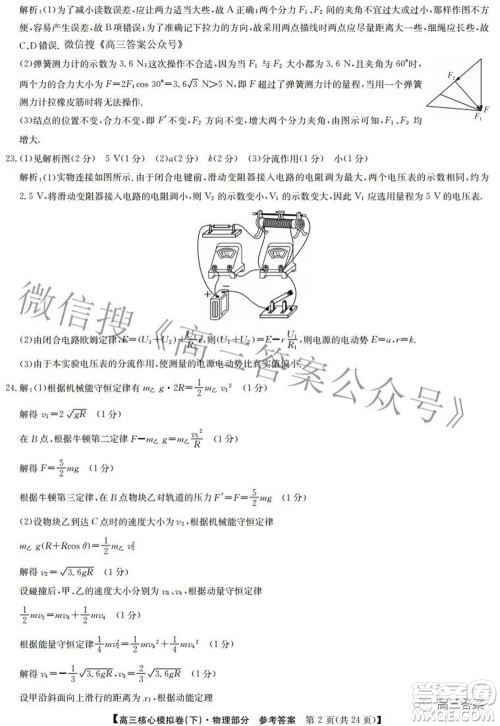 解析:(1)为了减小读数误差,应让两力适当大一些,故A项正确;两个分力F₁、F₂的夹角不宜过大或过小,
、F₂的夹角不宜过大或过小,
细绳应长一些,故B项错误;为了准确记下拉力的方向,故采用两点描线时两点应尽量距离大一些,故
C、D错误. 微信搜《高三答案公众号》
(2)弹簧测力计的示数为3.6 N;两个分力的大小不太合适,因为当F₁与F₂大小为3.6 N,且夹角为60°时,
两个力的合力大小为F=2F₁cos 30°=3.6√3 N>5 N,即F超过了弹簧测力计的量程,再用一个弹簧
测力计拉橡皮筋时将无法操作.
(3)结点的位置不变,合力不变,即F′不变,F₂方向不变,F₁与F₂间的夹角变大,则F₁、F₂的大小均
增大.
F₁
23.(1)见解析图(2分) 5 V(1分) (2)a(2分) k(2分) (3)分流作用(1分) 小(1分)
解析:(1)实物连接如图所示.由于闭合电键前,滑动变阻器接入电路的电阻调到最大,这时V₁的示数约为
2.5 V,将滑动变阻器接入电路的电阻调小时,V₂的示数变小,V₁的示数变大,因此V₁应选用量程为5 V的电压表.
(2)由闭合电路欧姆定律,E=(U₁+U₂)+U₁/R₁ r,则(U₁+U₂)=E−r U₁/R₁,则电源的电动势E=a,r=k.
(3)由于本实验电压表的分流作用,使测量的电源电动势比真实值偏小.
24.解:(1)根据机械能守恒定律有m乙g·2R=1/2 m乙v₁² (1分)
解得v₁=2√gR (1分)
在B点,根据牛顿第二定律F−m乙g=m乙v₁²/R (1分)
解得F=5/2 mg (1分)
根据牛顿第三定律,在B点物块乙对轨道的压力F′=F=5/2 mg (1分)
(2)设物块乙到达C点时的速度为v₂,根据机械能守恒定律
m乙g(R+Rcos θ)=1/2 m乙v₂² (1分)
解得v₂=√3.6gR (1分)
设碰撞后,甲、乙的速度大小分别为v₃、v₄,根据动量守恒定律
1/2 mv₂=mv₃+1/2 mv₄ (1分)
根据能量守恒定律
1/2×1/2 mv₂²=1/2 mv₃²+1/2×1/2 mv₄² (1分)
解得v₃=2/3√3.6gR,v₄=−1/3√3.6gR (1分)
设甲沿斜面向上滑动的最大距离为x,根据动能定理
【高三核心模拟卷(下)·物理部分 参考答案 第2页(共24页)】
微信搜《高三答案公众号》
高三答案